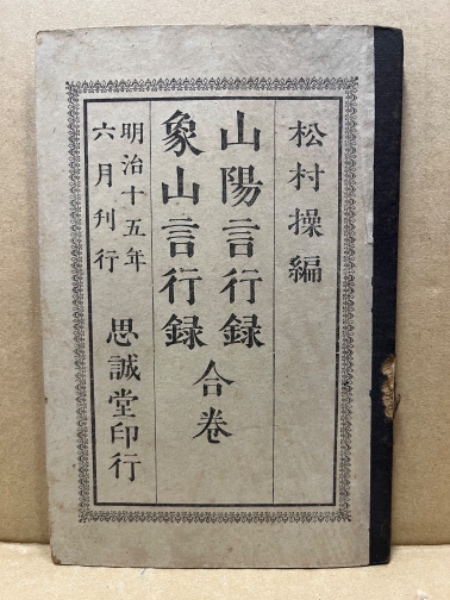 松村操編
山陽言行録
象山言行録
合巻
明治十五年
六月刊行
思誠堂印行